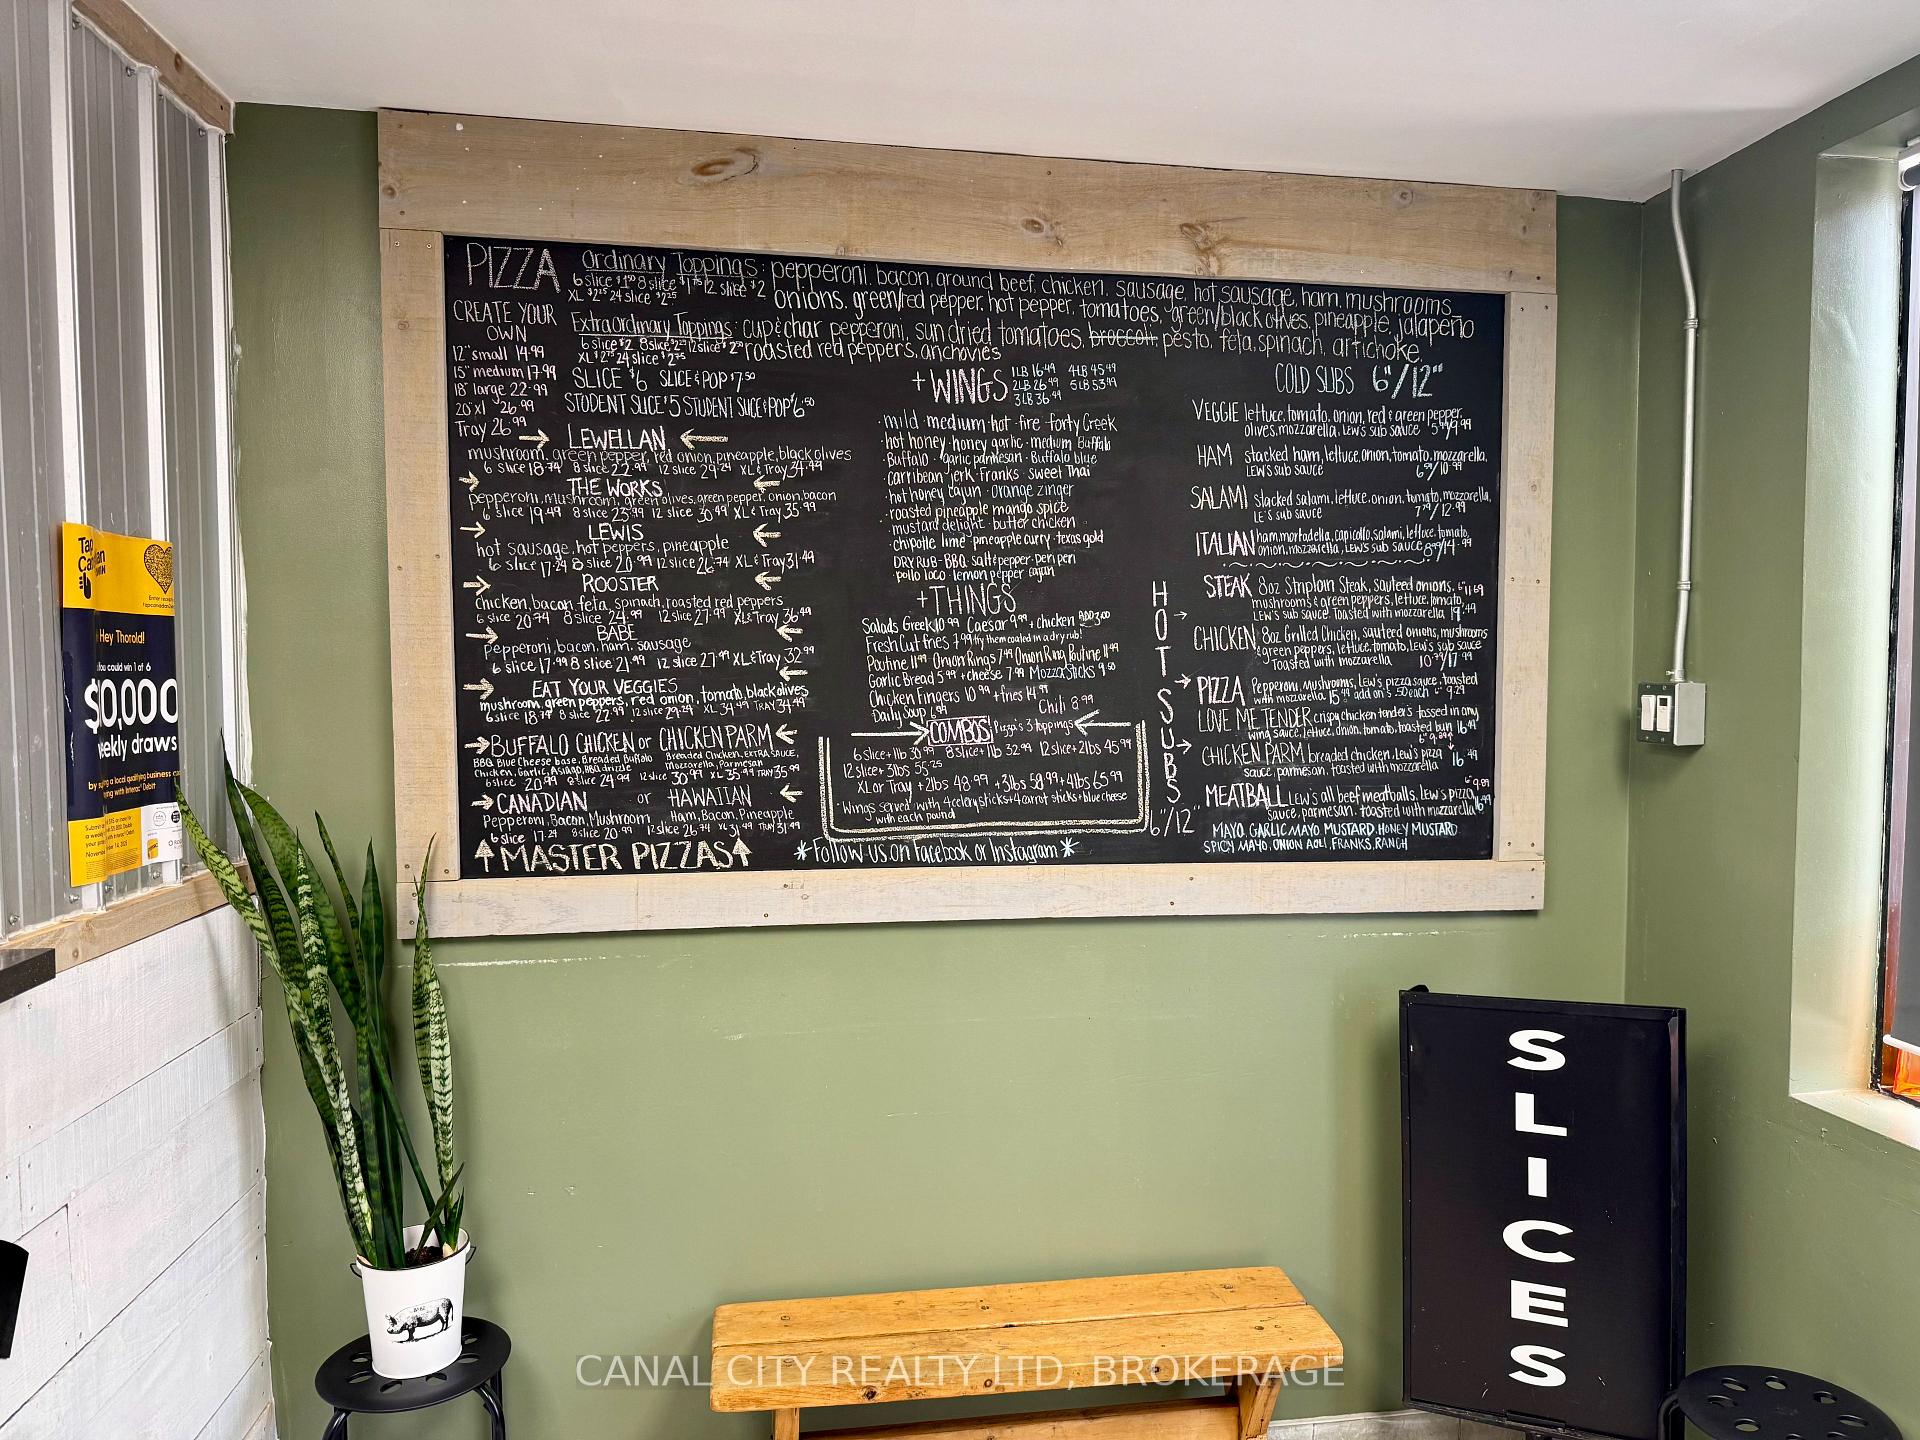 PIZZA
Ordinary Toppings: pepperoni, bacon, ground beef, chicken, sausage, hot sausage, ham, mushrooms
6 slice $1.50 8 slice $1.75 12 slice $2
XL $2.25 24 slice $2.25
onions, green/red pepper, hot pepper, tomatoes, green/black olives, pineapple, jalapeño
ExtraOrdinary Toppings: cup & char pepperoni, sun dried tomatoes, broccoli, pesto, feta, spinach, artichoke,
6 slice $2 8 slice $2.25 12 slice $2.50
XL $2.75 24 slice $2.75
roasted red peppers, anchovies
CREATE YOUR
OWN
12" small 14.99
15" medium 17.99
18" large 22.99
20" xl 26.99
Tray 26.99
SLICE $6 SLICE & POP $7.50
STUDENT SLICE $5 STUDENT SLICE & POP $6.50
→ LEWELLAN ←
mushroom, green pepper, red onion, pineapple, black olives
6 slice 18.74 8 slice 22.99 12 slice 29.24 XL & Tray 34.49
→ THE WORKS ←
pepperoni, mushroom, green olives, green pepper, onion, bacon
6 slice 19.49 8 slice 23.99 12 slice 30.49 XL & Tray 35.99
→ LEWIS ←
hot sausage, hot peppers, pineapple
6 slice 17.24 8 slice 20.99 12 slice 26.74 XL & Tray 31.49
→ ROOSTER ←
Chicken, bacon, feta, spinach, roasted red peppers
6 slice 20.74 8 slice 24.99 12 slice 27.99 XL & Tray 36.49
→ BABE ←
Pepperoni, bacon, ham, sausage
6 slice 17.99 8 slice 21.99 12 slice 27.99 XL & Tray 32.99
→ EAT YOUR VEGGIES ←
mushroom, green peppers, red onion, tomato, black olives
6 slice 18.74 8 slice 22.99 12 slice 29.24 XL 34.49 TRAY 34.49
→ BUFFALO CHICKEN or CHICKEN PARM ←
BBQ Blue Cheese base, Breaded Buffalo
Chicken, Garlic, Asiago, BBQ drizzle
Breaded Chicken, EXTRA SAUCE,
Mozzarella, Parmesan
6 slice 20.99 8 slice 24.99 12 slice 30.99 XL 35.99 TRAY 35.99
→ CANADIAN or HAWAIIAN ←
Pepperoni, Bacon, Mushroom Ham, Bacon, Pineapple
6 slice 17.24 8 slice 20.99 12 slice 26.74 XL 31.49 TRAY 31.49
↑ MASTER PIZZAS ↑
+ WINGS
1LB 16.49 4LB 45.49
2LB 26.49 5LB 53.49
3LB 36.49
· mild · medium · hot · fire · forty Creek
· hot honey · honey garlic · medium Buffalo
· Buffalo · garlic parmesan · Buffalo blue
· carribean jerk · Franks · sweet Thai
· hot honey cajun · orange zinger
· roasted pineapple mango spice
· mustard delight · butter chicken
· chipotle lime · pineapple curry · texas gold
DRY RUB · BBQ · salt & pepper · peri peri
· pollo loco · lemon pepper · cajun
+ THINGS
Salads Greek 10.99 Caesar 9.99 + chicken ADD 3.00
Fresh Cut Fries 7.99 try them coated in a dry rub!
Poutine 11.99 Onion Rings 7.99 Onion Ring Poutine 11.99
Garlic Bread 5.99 + cheese 7.99 Mozza Sticks 9.50
Chicken Fingers 10.99 + fries 14.99
Daily Soup 6.99 Chili 8.99
→ COMBOS Pizza's 3 toppings ←
6 slice + 1lb 30.99 8 slice + 1lb 32.99 12 slice + 2lbs 45.99
12 slice + 3lbs 55.25
XL or Tray + 2lbs 48.99 + 3lbs 58.99 + 4lbs 65.99
*Wings served with 4 celery sticks + 4 carrot sticks + blue cheese
with each pound
*Follow us on Facebook or Instagram*
COLD SUBS 6"/12"
VEGGIE lettuce, tomato, onion, red & green pepper,
olives, mozzarella, LEW's sub sauce 5.99/9.99
HAM stacked ham, lettuce, onion, tomato, mozzarella,
LEW's sub sauce 6.99/10.99
SALAMI stacked salami, lettuce, onion, tomato, mozzarella,
LE's sub sauce 7.79/12.99
ITALIAN ham, mortadella, capicollo, salami, lettuce, tomato,
onion, mozzarella, LEW's sub sauce 8.99/14.99
HOT SUBS
6"/12"
STEAK 8oz Striploin Steak, sauteed onions,
mushrooms & green peppers, lettuce, tomato,
LEW's sub sauce. Toasted with mozzarella
CHICKEN 8oz Grilled Chicken, sauteed onions, mushrooms
& green peppers, lettuce, tomato, Lew's sub sauce
Toasted with mozzarella 10.79/17.99
PIZZA Pepperoni, Mushrooms, Lew's pizza sauce, toasted
with mozzarella 15.49 add on's .50 each 6" 9.29
LOVE ME TENDER crispy chicken tender's tossed in any
wing sauce, lettuce, onion, tomato, toasted bun 16.49
CHICKEN PARM breaded chicken, Lew's pizza
sauce, parmesan, toasted with mozzarella 16.49
MEATBALL Lew's all beef meatballs, Lew's pizza
sauce, parmesan, toasted with mozzarella
MAYO, GARLIC MAYO, MUSTARD, HONEY MUSTARD
SPICY MAYO, ONION AOLI, FRANKS, RANCH
Hey Thorold!
You could win 1 of 6
$0,000
weekly draws
SLICES
CANAL CITY REALTY LTD, BROKERAGE